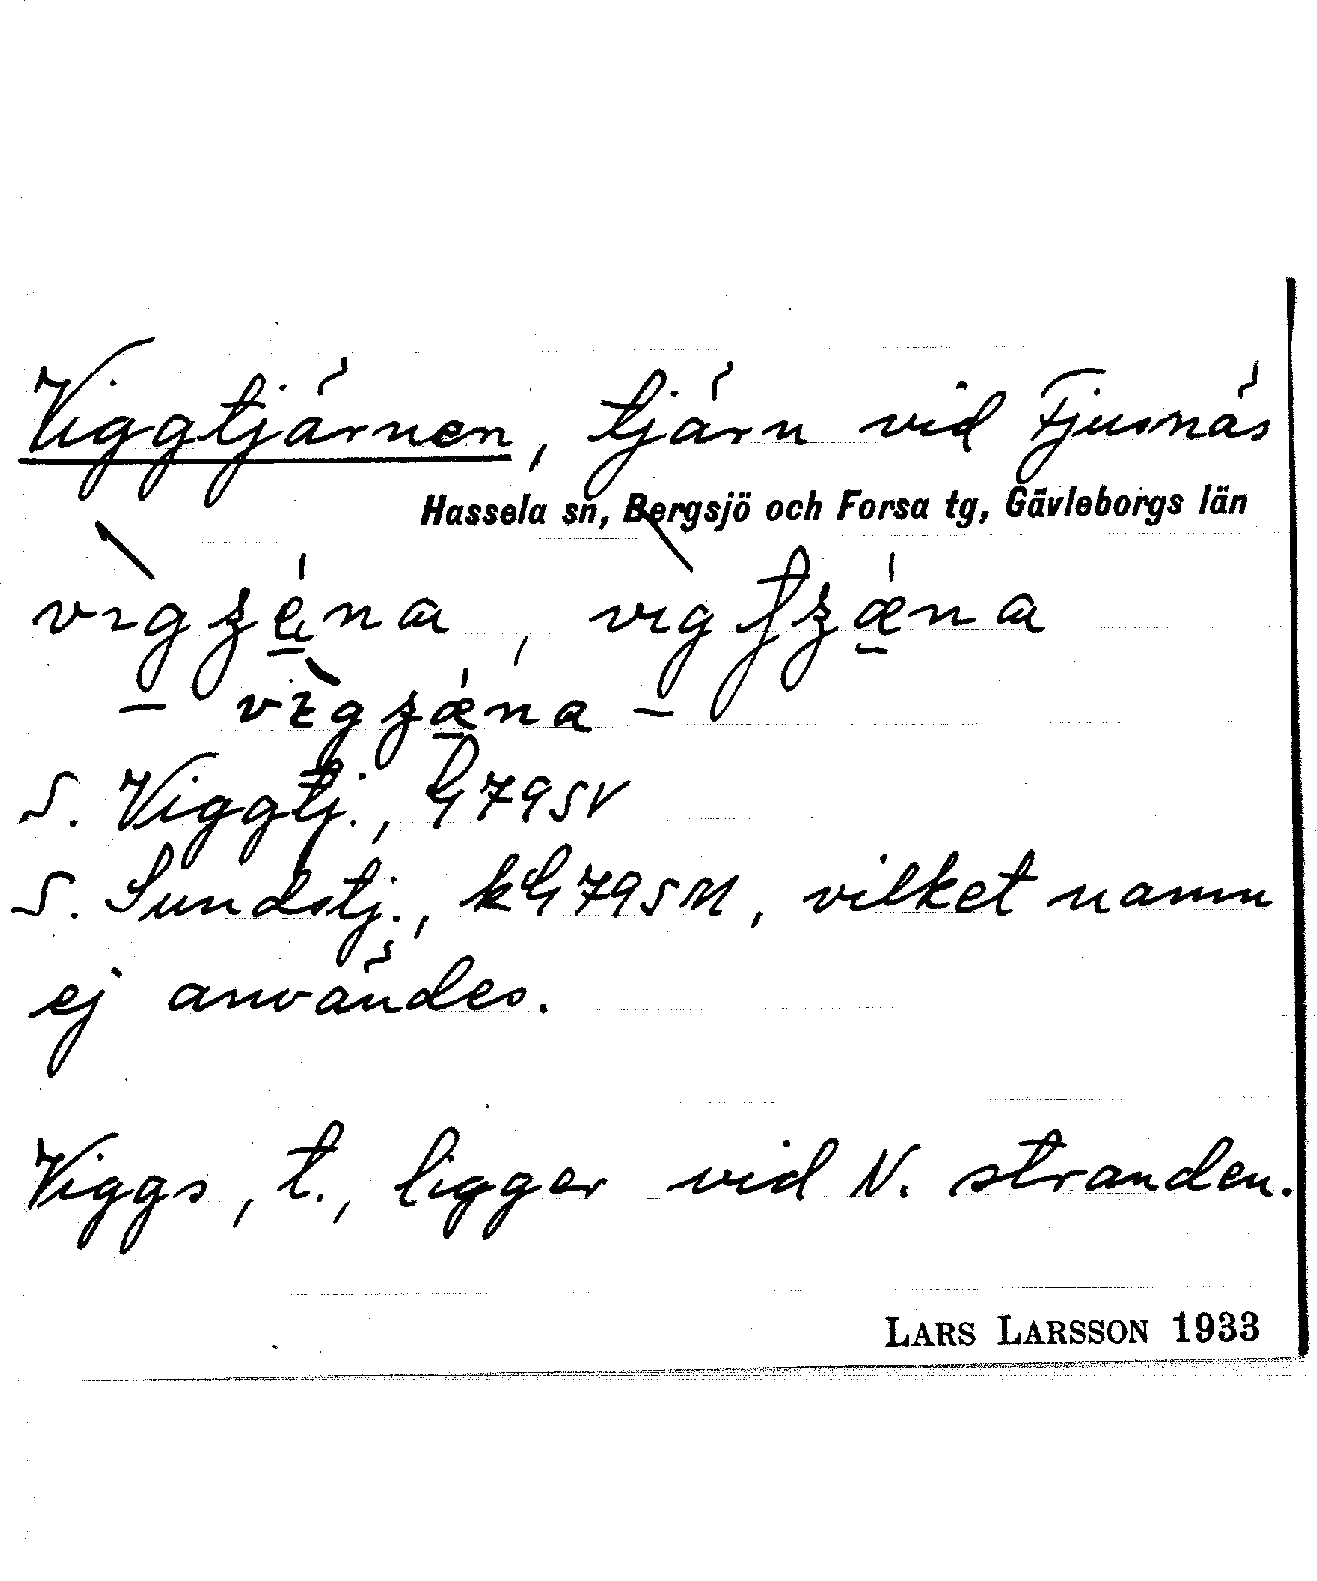 Viggtjärnen, tjärn vid Fjusnäs
Hassela sn, Bergsjö och Forsa tg, Gävleborgs län
S. Viggtj., G79SV
S. Sundstj., kG79SM, vilket namn
ej användes.
Viggs, t., ligger vid N. stranden.
LARS LARSSON 1933